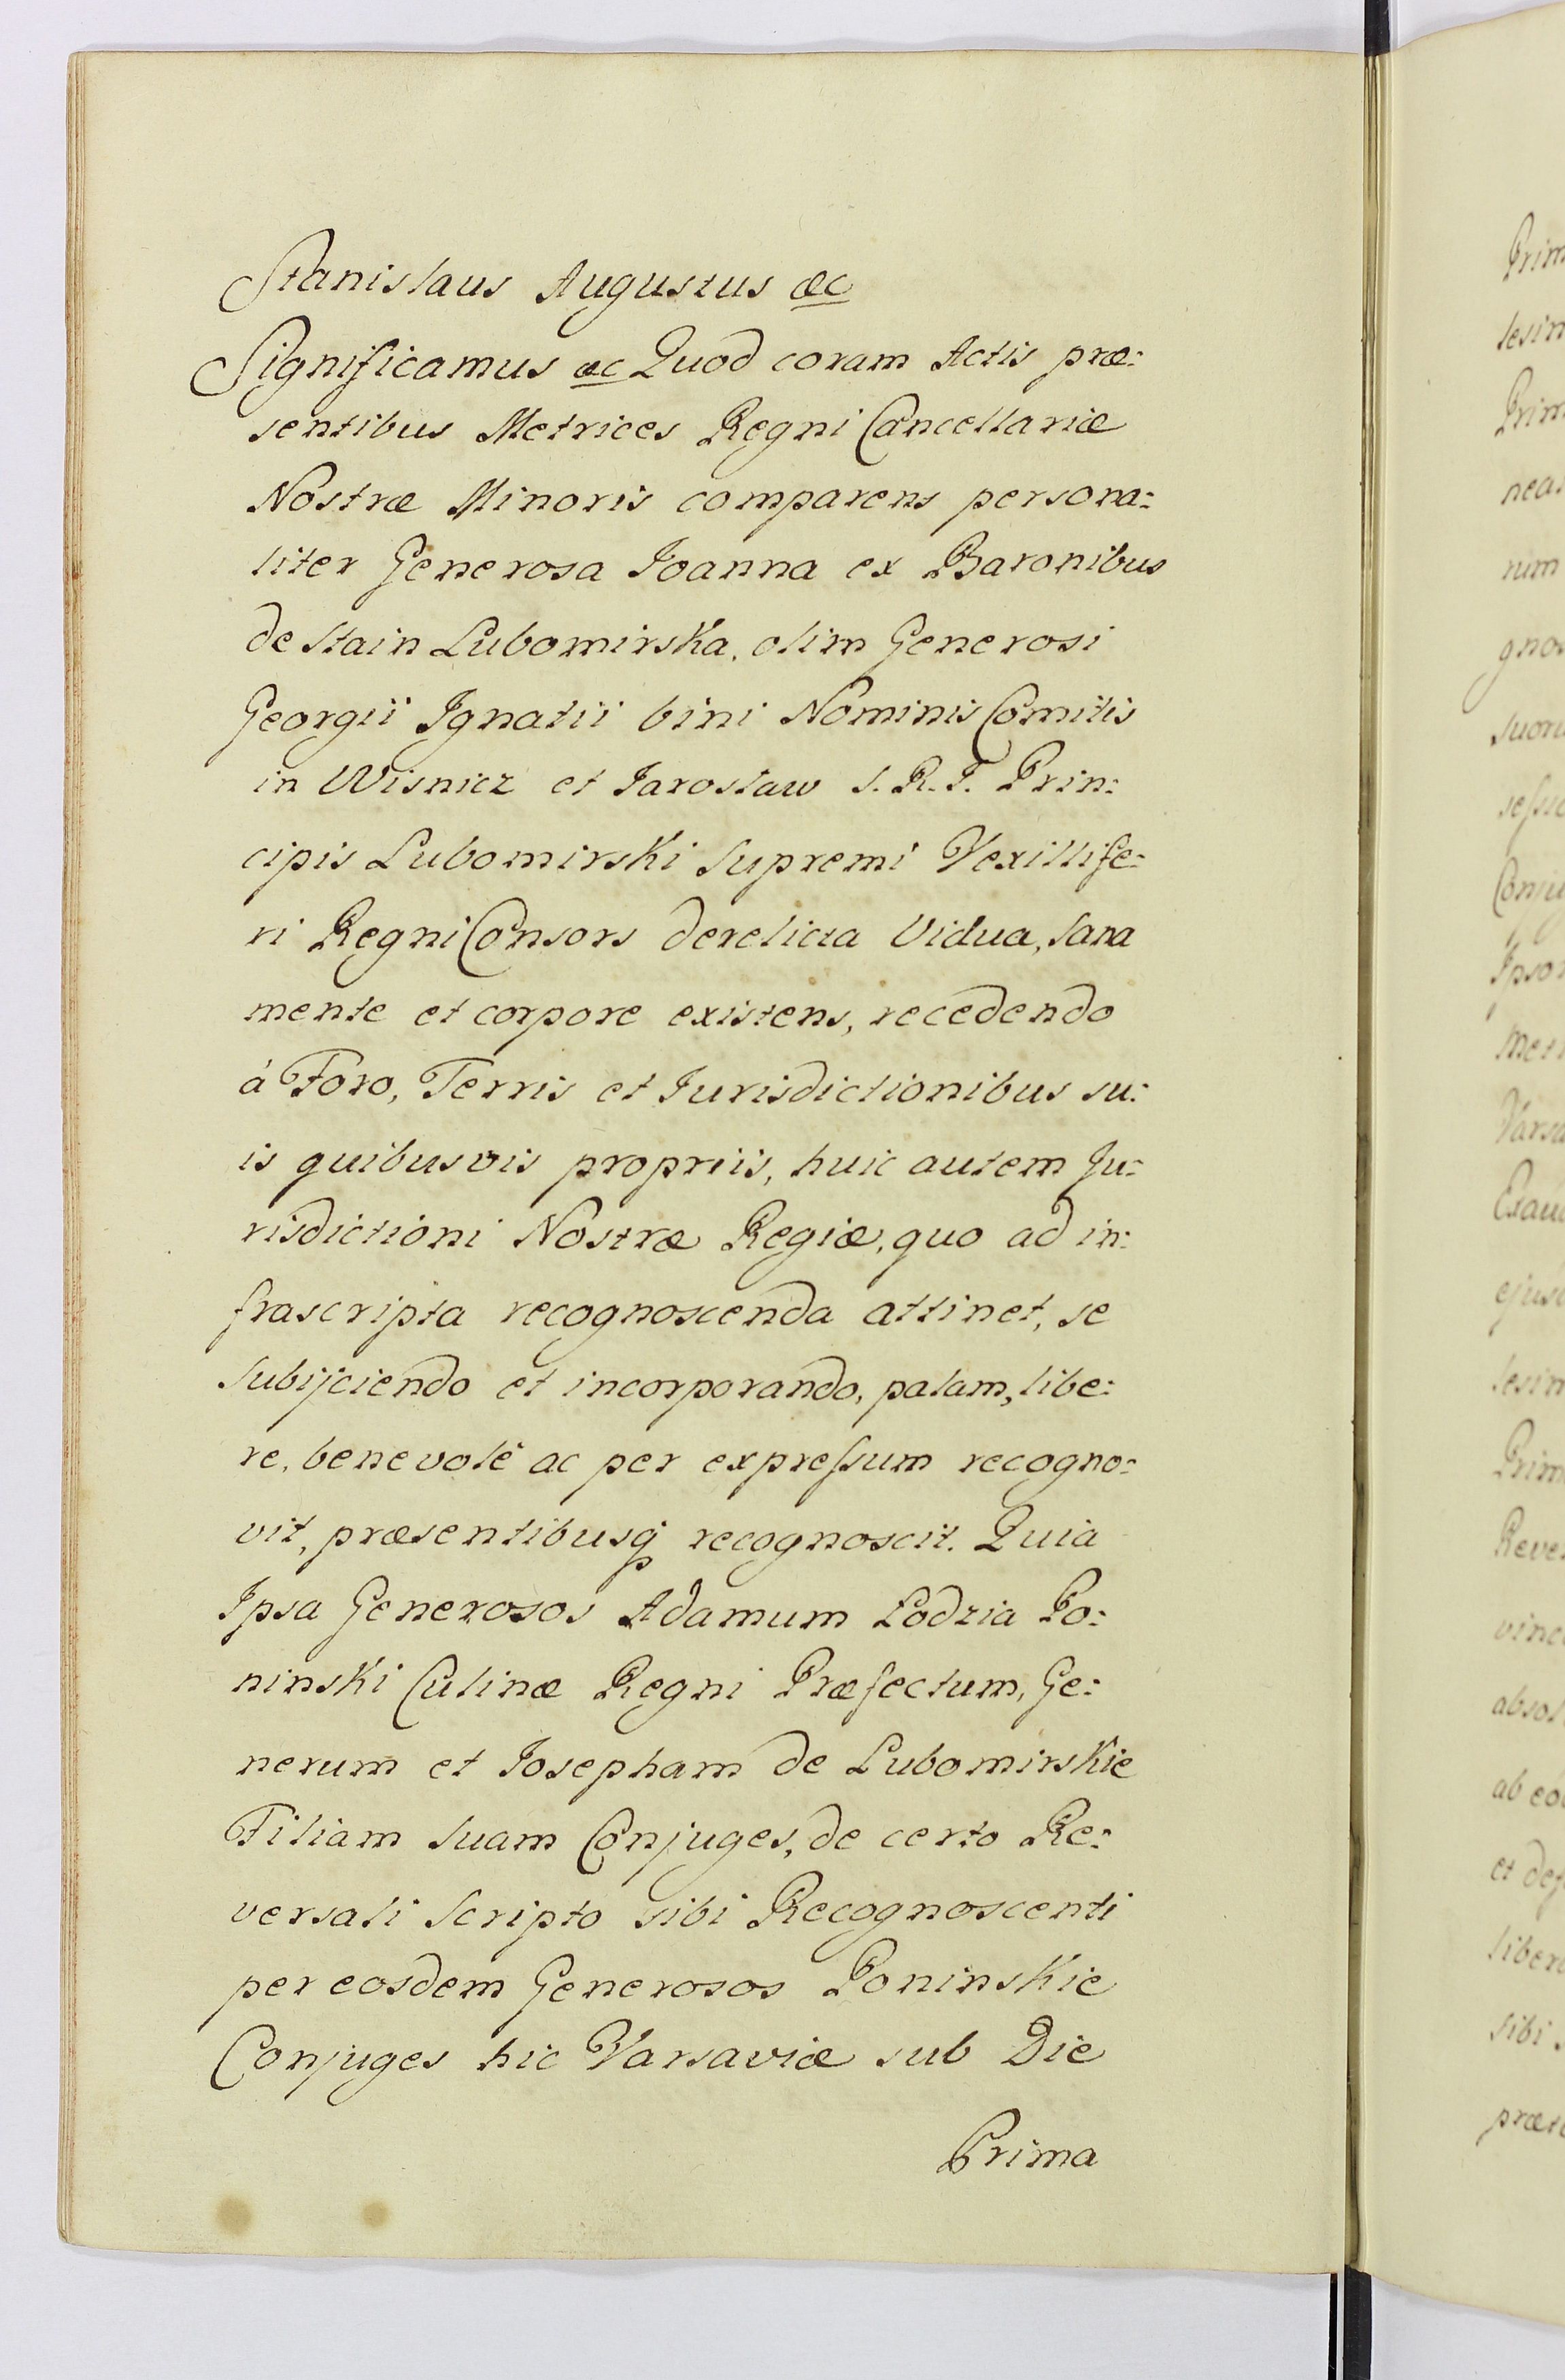 Stanislaus Augustus &c
Significamus &c Quod coram Actis præ:
sentibus Metrices Regni Cancellariæ
Nostræ Minoris comparens persona:
liter Generosa Joanna ex Baronibus
de Stain Lubomirska, olim Generosi
Georgii Ignatii bini Nominis Comitis
in Wisnicz et Jarosław S. R. I. Prin:
cipis Lubomirski Supremi Vexillife:
ri Regni Consors derelicta Vidua, sana
mente et corpore existens, recedendo
à Foro, Terris et Jurisdictionibus su:
is quibusvis propriis, huic autem Ju:
risdictioni Nostræ Regiæ, quo ad in:
frascripta recognoscenda attinet, se
subijciendo et incorporando, palam, libe:
re, benevolè ac per expreſsum recogno:
vit, præsentibusq recognoscit. Quia
Ipsa Generosos Adamum Łodzia Po:
ninski Culinæ Regni Præfectum, Ge:
nerum et Josepham de Lubomirskie
Filiam suam Conjuges, de certo Re:
versali Scripto sibi Recognoscenti
per eosdem Generosos Poninskie
Conjuges hic Varsaviæ sub Die
Prima